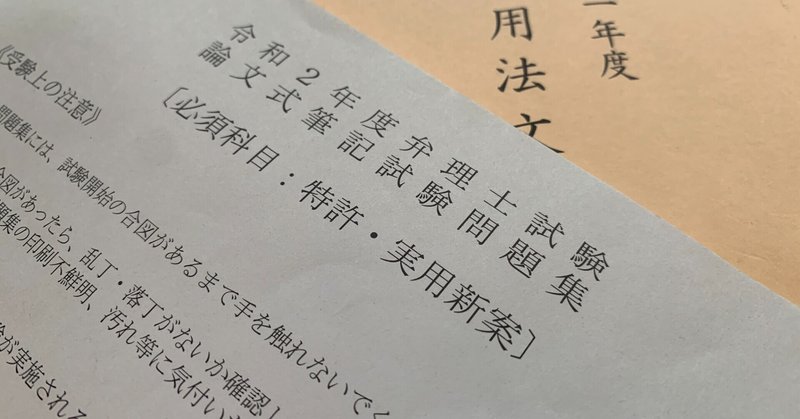 令和２年度弁理士試験
論文式筆記試験問題集
〔必須科目：特許・実用新案〕
《受験上の注意》
問題集には、試験開始の合図があるまで手を触れないでく
合図があったら、乱丁・落丁がないか確認し
題集の印刷不鮮明、汚れ等に気付い
が実施される
年度
用法文